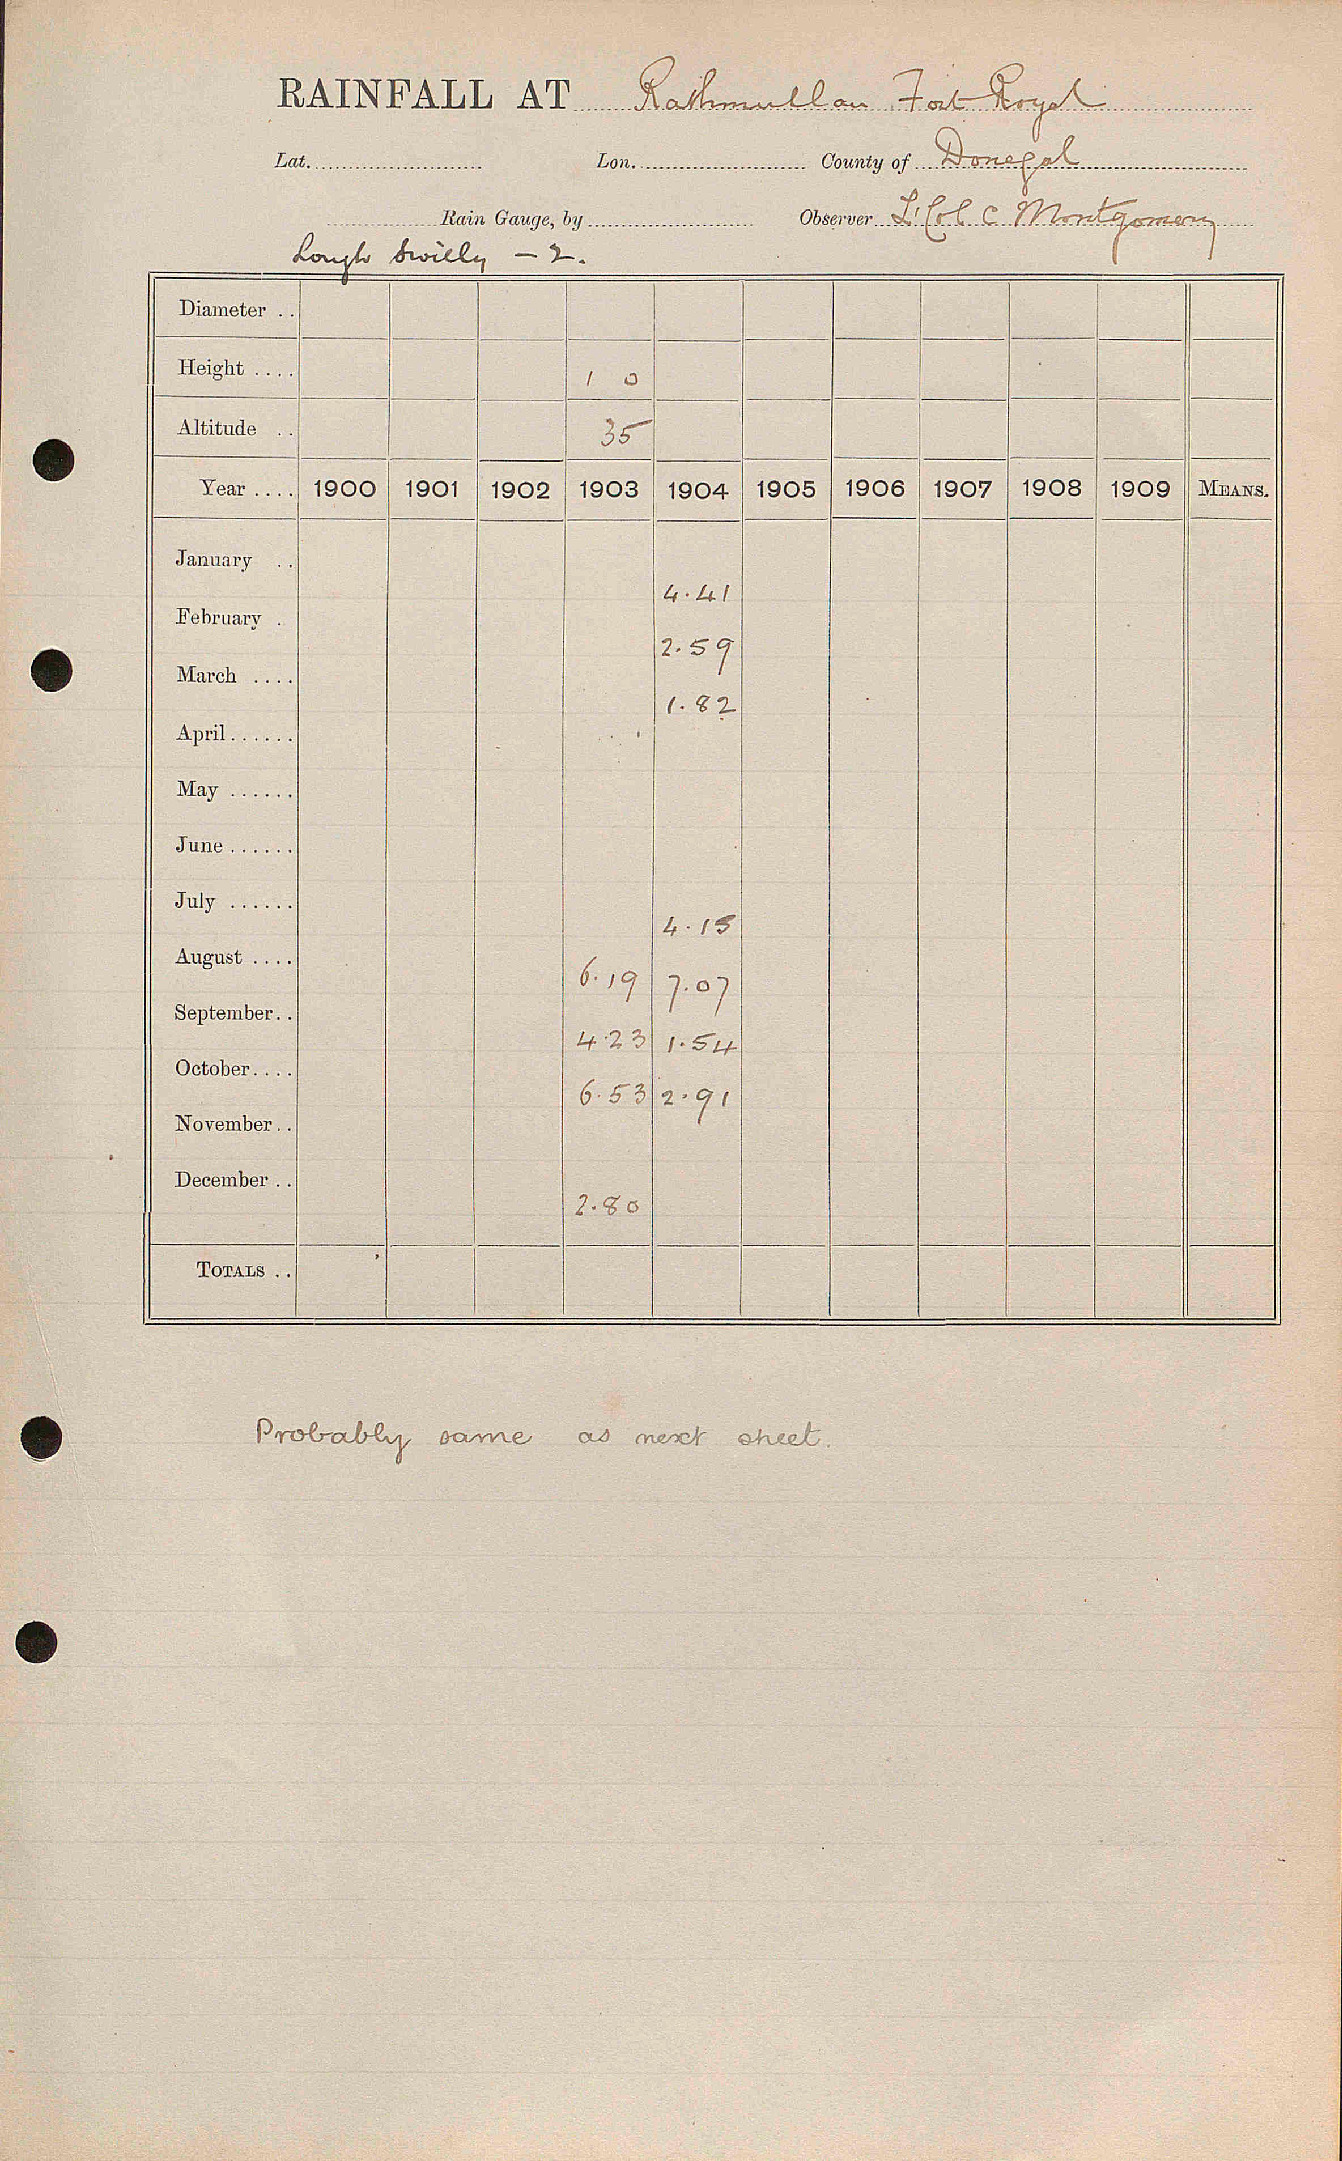 RAINFALL AT Rathmullan Fort Royal
Lat. Lon. County of Donegal
Rain Gauge, by Observer Lt Col C Montgomery
Lough Swilly - 2.
Diameter . .
Height . . . . 1 0
Altitude . . 35
Year . . . . 1900 1901 1902 1903 1904 1905 1906 1907 1908 1909 MEANS.
January . .
4.41
February .
2.59
March . . . .
1.82
April . . . . . .
May . . . . . .
June . . . . . .
July . . . . . .
4.15
August . . . .
6.19 7.07
September . .
4.23 1.54
October . . . .
6.53 2.91
November . .
December . .
2.80
TOTALS . .
Probably same as next sheet.